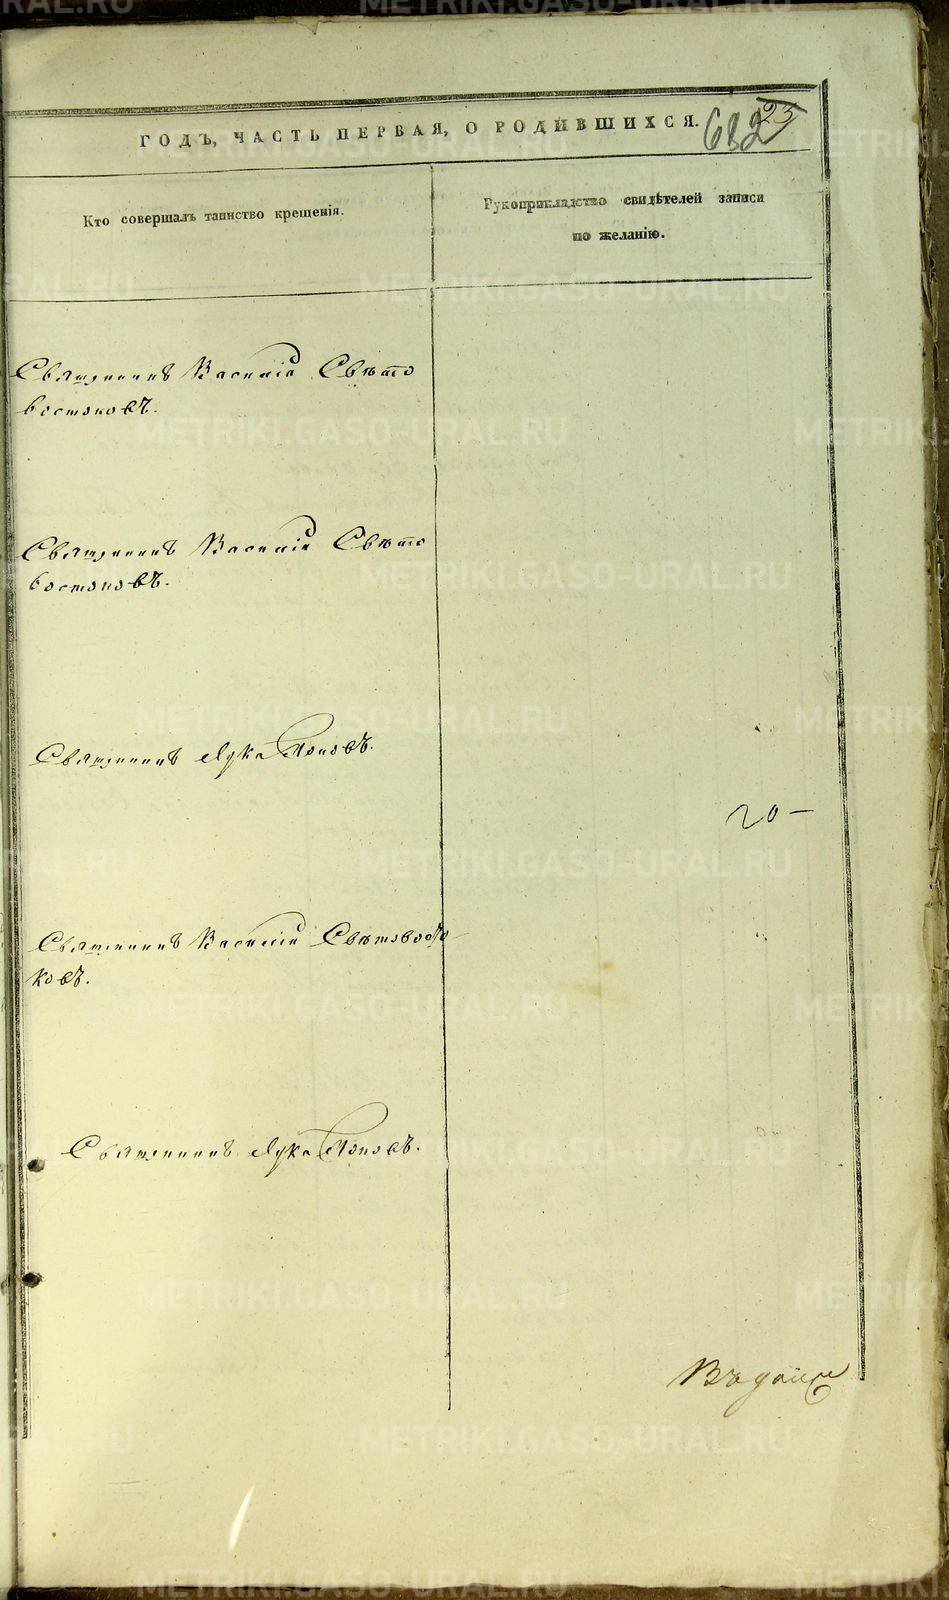 ГОДЪ, ЧАСТЬ ПЕРВАЯ, О РОДИВШИХСЯ.
682 23
Кто совершалъ таинство крещенія.
Рукоприкладство свидѣтелей записи
по желанію.
Священникъ Василій Свѣто
востоковъ.
Священникъ Василій Свѣто
востоковъ.
Священникъ Лука Поповъ.
20 –
Священникъ Василій Свѣтовосто
ковъ.
Священникъ Лука Поповъ.
METRIKI.GASO-URAL.RU